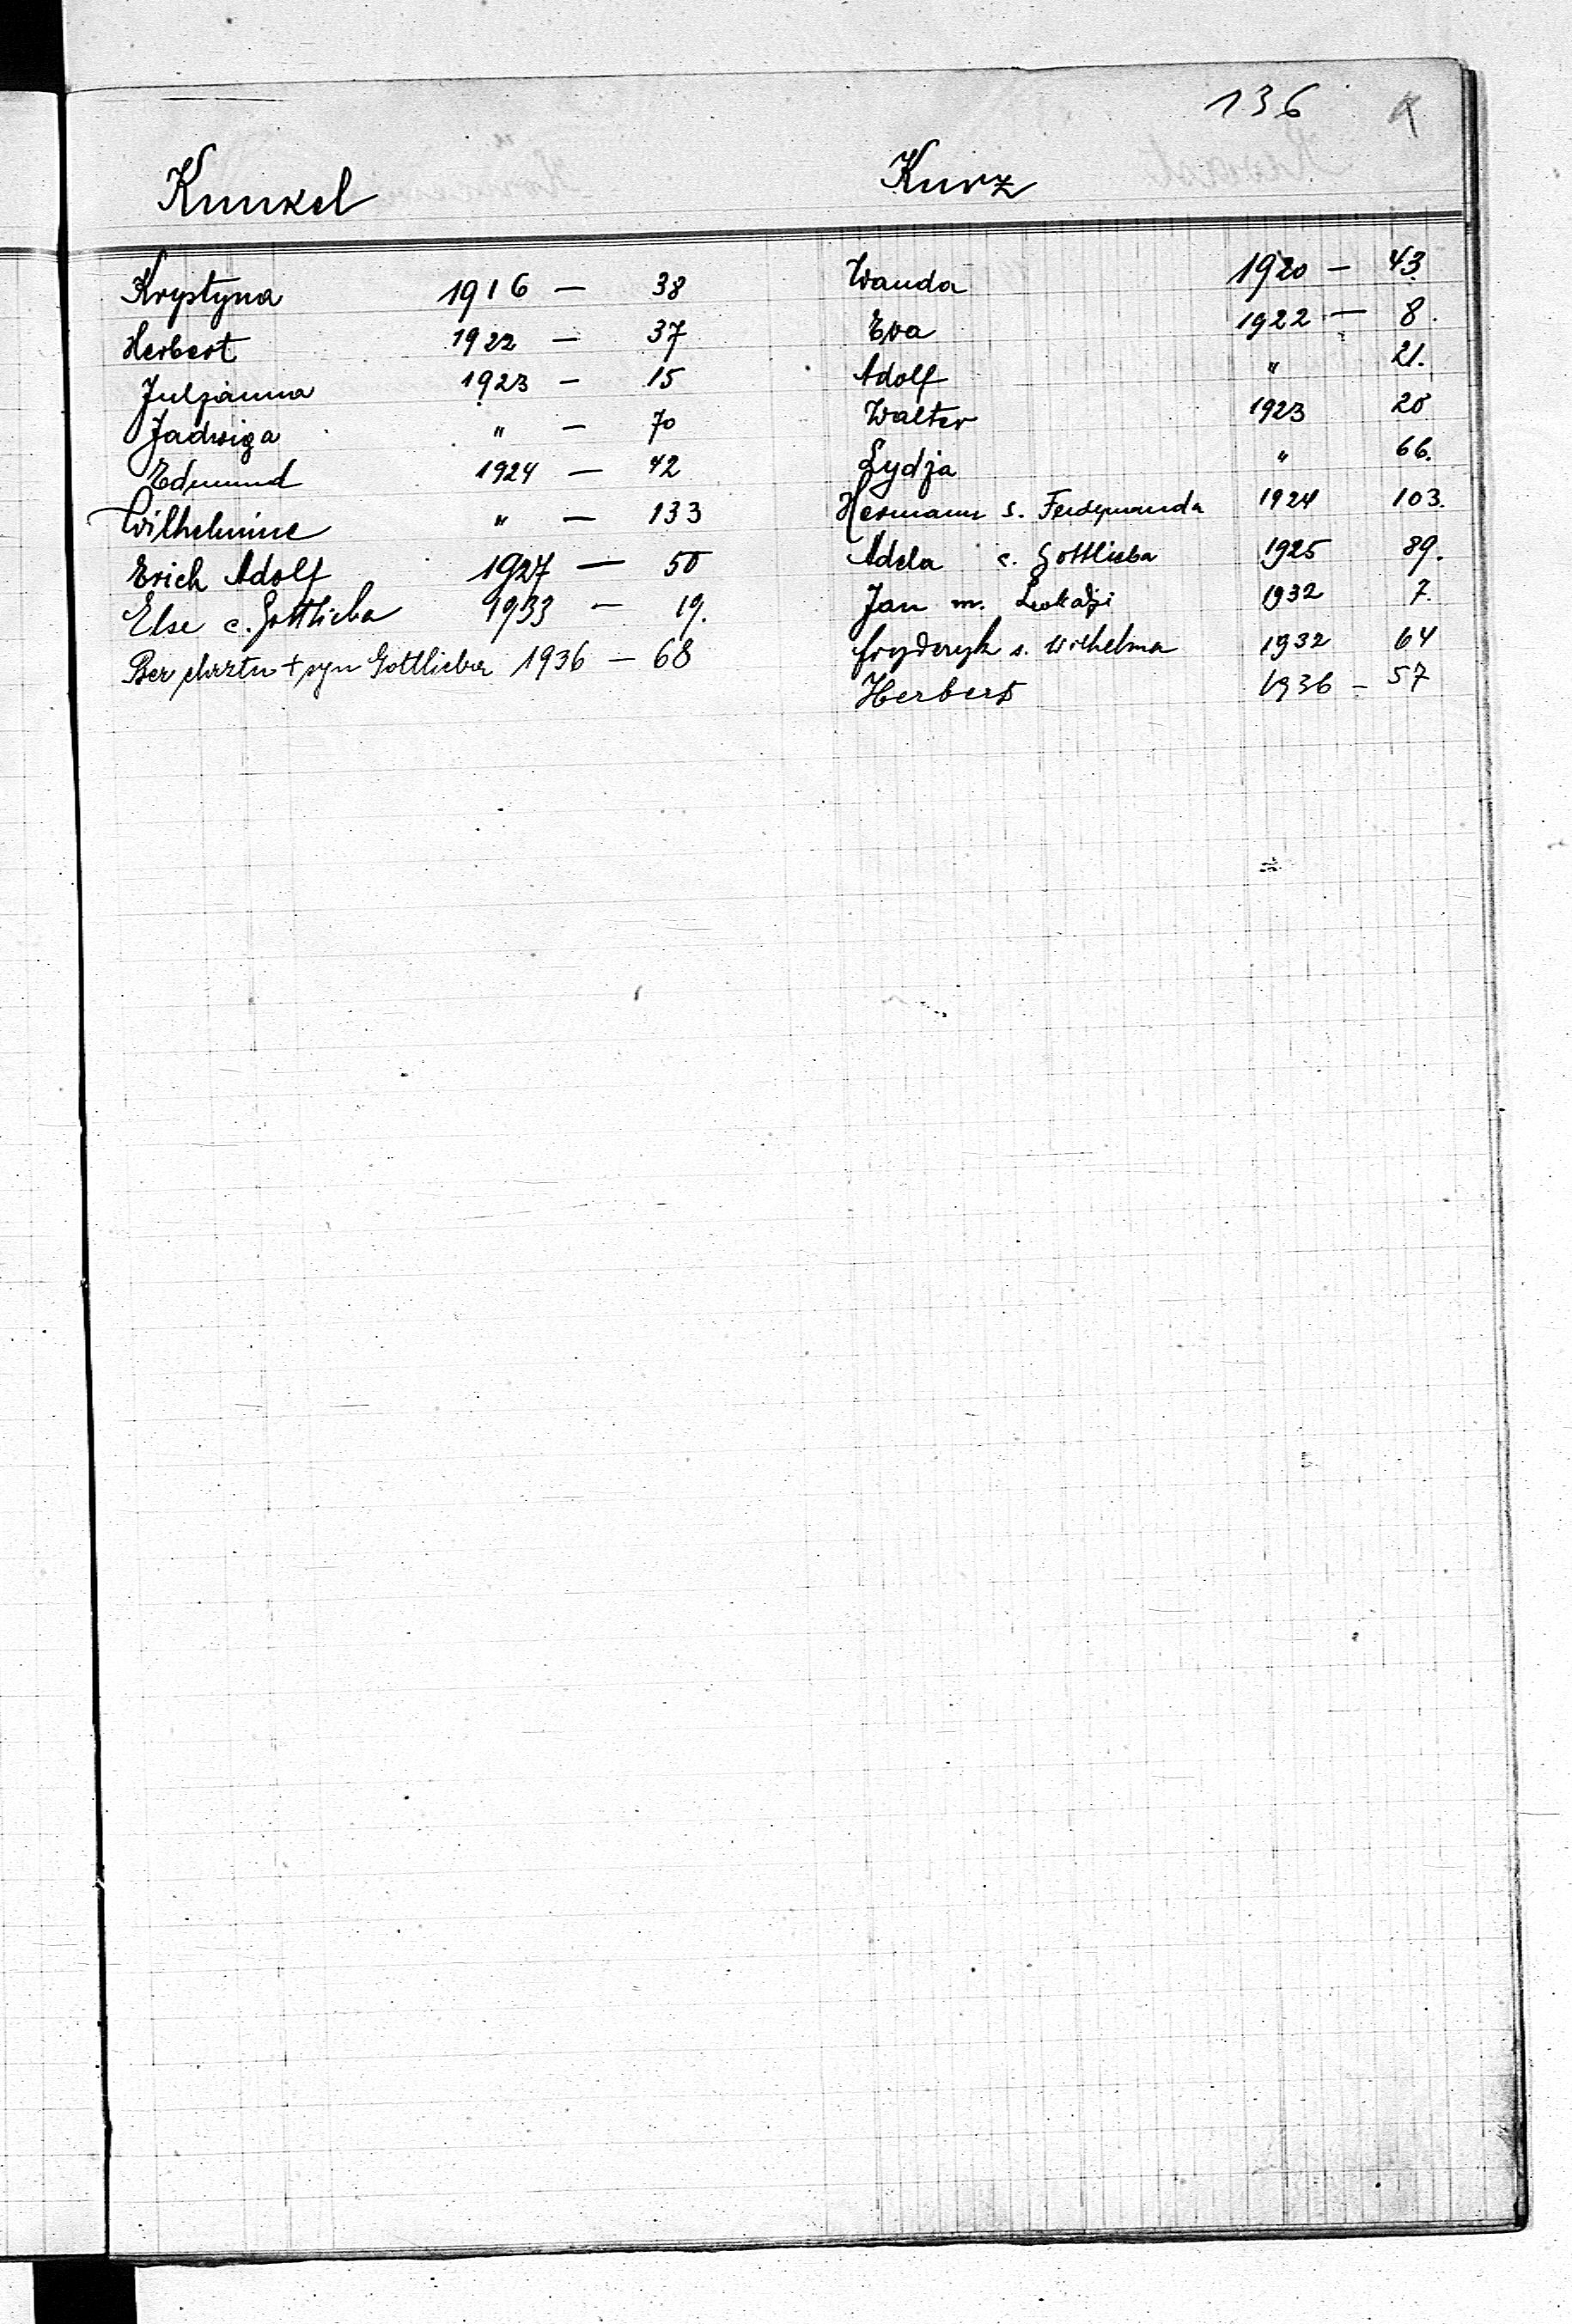 136
Kunkel
Krystyna 1916 — 38
Herbert 1922 — 37
Juljanna 1923 — 15
Jadwiga " — 70
Edmund 1924 — 42
Wilhelmine " — 133
Erich Adolf 1927 — 50
Else c. Gottlieba 1933 — 19.
Bez chrztu + syn Gottlieba 1936 — 68
Kurz
Wanda 1920 — 43
Eva 1922 — 8.
Adolf " 21.
Walter 1923 20
Lydja " 66.
Hermann s. Ferdynanda 1924 103.
Adela c. Gottlieba 1925 89.
Jan m. 1932 7.
Fryderyk s. Wilhelma 1932 64
Herbert 1936 — 57